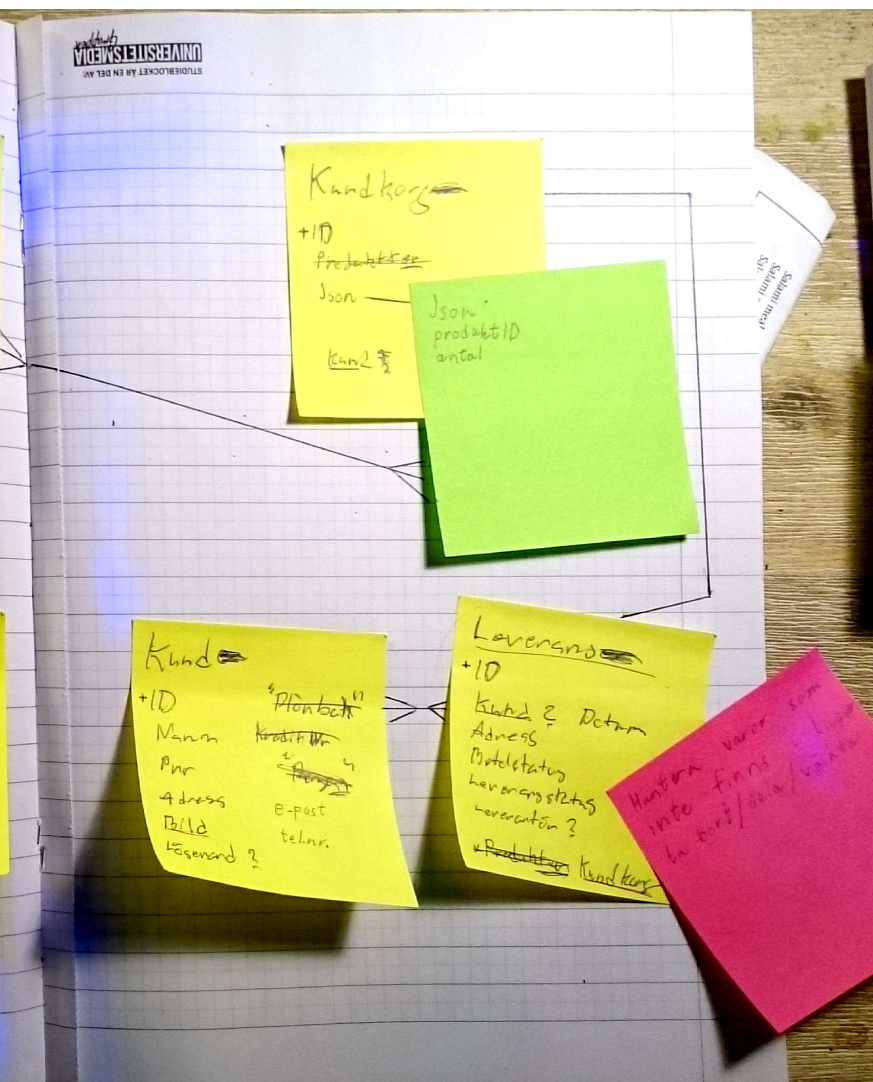 UNIVERSITETSMEDIA
Gruppen
STUDIEBLOCKET ÄR EN DEL AV:
Kundkorg
+ID
Produkter
Json
Kund ?
Json
produktID
antal
Salami meat
Salami -
Sal-
Kund
+ID
Namn
Pnr
Adress
Bild
Lösenord ?
"Plånbok"
Kredit Nr
"Pengar"
e-post
tel.nr.
Leverans
+ID
Kund ? Datum
Adress
Betalstatus
Leveransstatus
Leverantör ?
Produkter Kundkorg
Hantera varor som
inte finns i lager
ta bort/dela/vänta